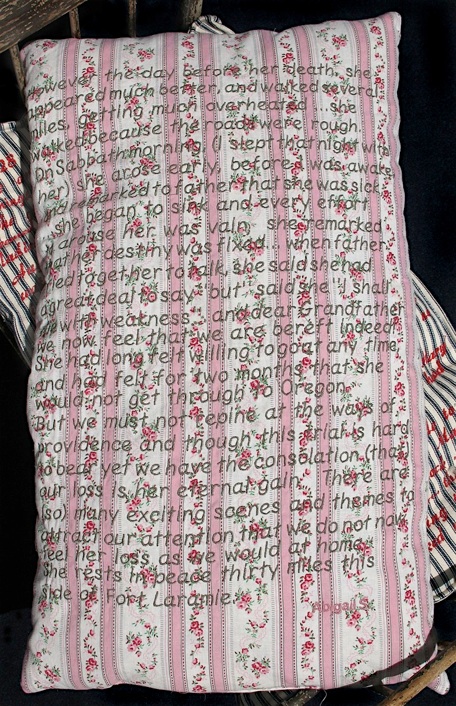 However the day before her death, she
appeared much better, and walked several
miles, getting much overheated. she
walked because the roads were rough.
On Sabbath morning (I slept that night with
her) she arose early, before I was awake
and remarked to father that she was sick.
she began to sink and every effort
to arouse her was vain. she remarked
father destiny was fixed... when father
tried to get her to talk, she said she had
a great deal to say "but", said she "I shall
die with weakness" and dear Grandfather
we now feel that we are bereft indeed.
She had long felt willing to go at any time
and had felt for two months that she
would not get through to Oregon.
But we must not repine at the ways of
Providence and though this trial is hard
to bear yet we have the consolation (that)
our loss is her eternal gain. There are
(so) many exciting scenes and themes to
attract our attention that we do not now
feel her loss as we would at home.
She rests in peace thirty miles this
side of Fort Laramie.
Abigail S.